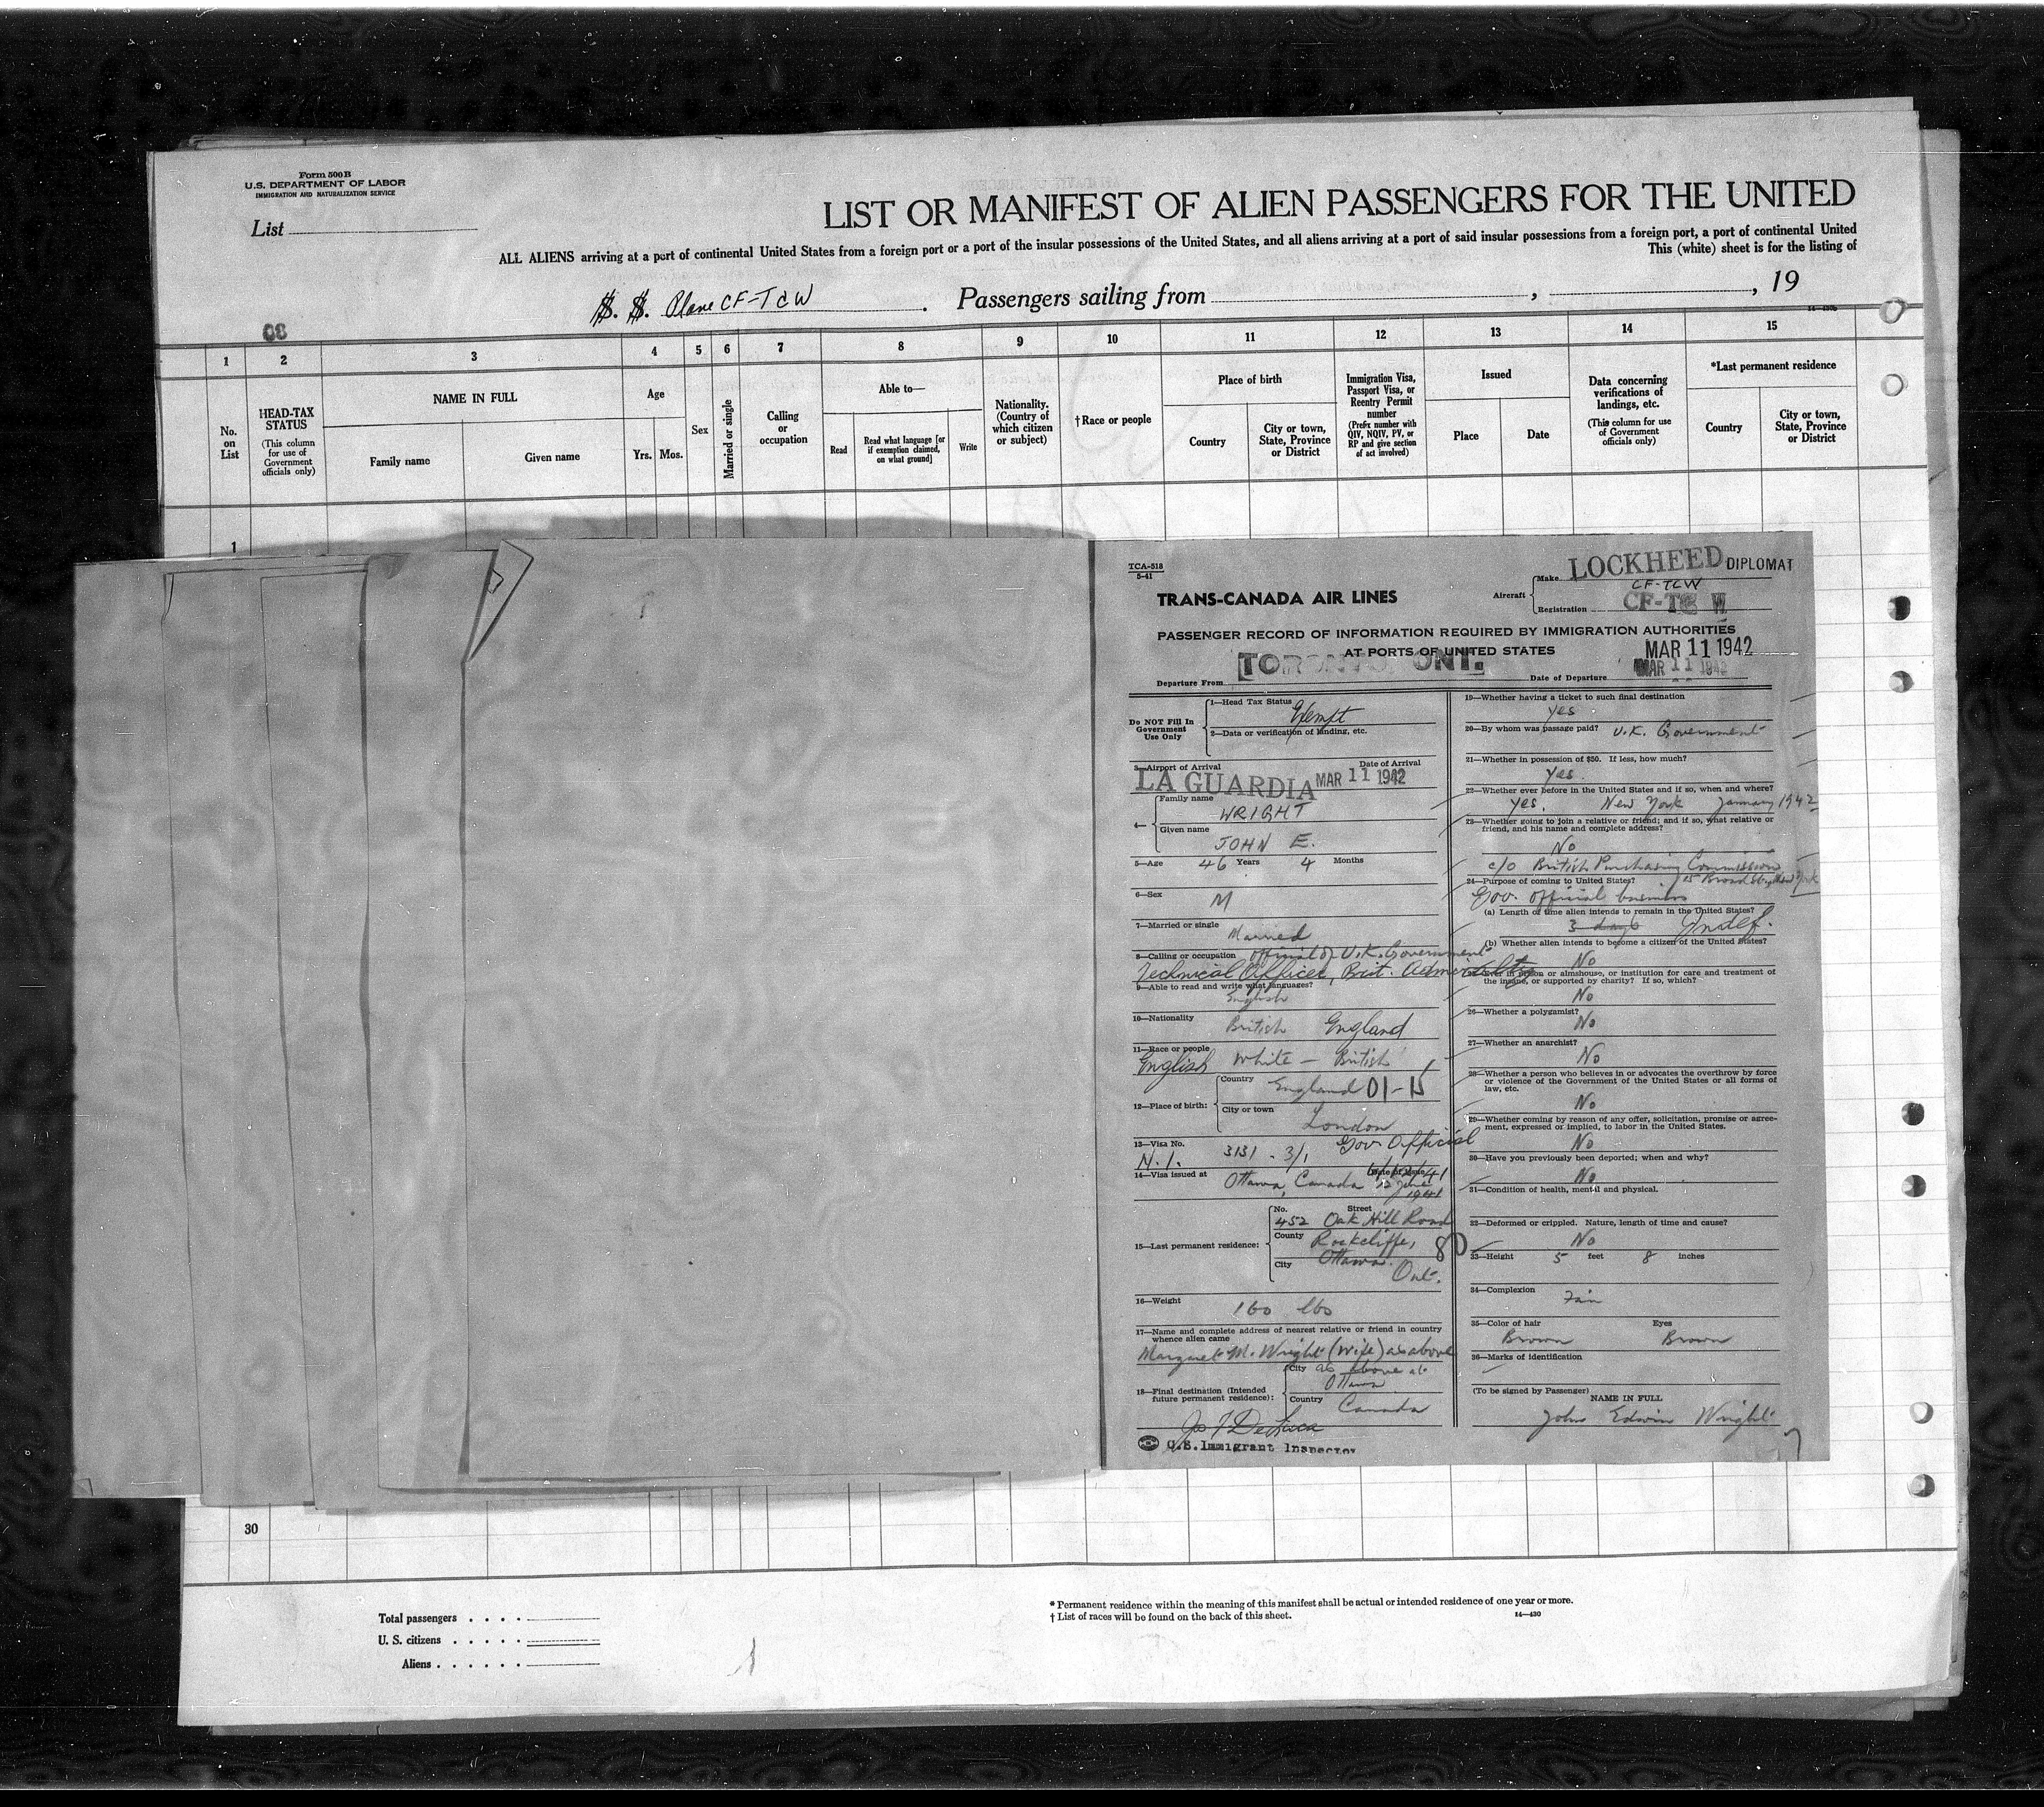 Form 500 B
U.S. DEPARTMENT OF LABOR
IMMIGRATION AND NATURALIZATION SERVICE
List
LIST OR MANIFEST OF ALIEN PASSENGERS FOR THE UNITED
ALL ALIENS arriving at a port of continental United States from a foreign port or a port of the insular possessions of the United States, and all aliens arriving at a port of said insular possessions from a foreign port, a port of continental United
This (white) sheet is for the listing of
S. S. Plane CF-TCW . Passengers sailing from , , 19
08
1 2 3 4 5 6 7 8 9 10 11 12 13 14 15
No. on List
HEAD-TAX STATUS
(This column for use of Government officials only)
NAME IN FULL
Family name
Given name
Age
Yrs. Mos.
Sex
Married or single
Calling or occupation
Able to—
Read
Read what language [or if exemption claimed, on what ground]
Write
Nationality. (Country of which citizen or subject)
†Race or people
Place of birth
Country
City or town, State, Province or District
Immigration Visa, Passport Visa, or Reentry Permit number
(Prefix number with QIV, NQIV, PV, or RP and give section of act involved)
Issued
Place
Date
Data concerning verifications of landings, etc.
(This column for use of Government officials only)
*Last permanent residence
Country
City or town, State, Province or District
1
TCA-518
5-41
TRANS-CANADA AIR LINES
Aircraft
Make LOCKHEED DIPLOMAT
CF-TCW
Registration CF-TC W
PASSENGER RECORD OF INFORMATION REQUIRED BY IMMIGRATION AUTHORITIES
AT PORTS OF UNITED STATES
MAR 11 1942
Departure From TORONTO, ONT.
Date of Departure MAR 11 1942
Do NOT Fill In Government Use Only
1—Head Tax Status Exempt
2—Data or verification of landing, etc.
3—Airport of Arrival LA GUARDIA
Date of Arrival MAR 11 1942
4—
Family name WRIGHT
Given name JOHN E.
5—Age 46 Years 4 Months
6—Sex M
7—Married or single Married
8—Calling or occupation official of U.K. Government
Technical Officer, Brit. Admiralty
9—Able to read and write what languages?
English
10—Nationality British England
11—Race or people
English White — British
12—Place of birth:
Country England 01-15
City or town London
13—Visa No. Gov Official
N.I. 3131 - 3/1
14—Visa issued at Ottawa, Canada
Date of Issue 12 June 1941
15—Last permanent residence:
No. 452 Street Oak Hill Road
County Rockcliffe, 80
City Ottawa. Ont.
16—Weight 160 lbs
17—Name and complete address of nearest relative or friend in country whence alien came
Margaret M. Wright (Wife) as above
18—Final destination (Intended future permanent residence):
City as above at Ottawa
Country Canada
U.S. Immigrant Inspector
19—Whether having a ticket to such final destination
yes
20—By whom was passage paid? U.K. Government
21—Whether in possession of $50. If less, how much?
Yes.
22—Whether ever before in the United States and if so, when and where?
Yes. New York January 1942
23—Whether going to join a relative or friend; and if so, what relative or friend, and his name and complete address?
No
c/o British Purchasing Commission
24—Purpose of coming to United States? 15 Broad St New York
Gov. official business
(a) Length of time alien intends to remain in the United States?
3 days Indef.
(b) Whether alien intends to become a citizen of the United States?
No
in prison or almshouse, or institution for care and treatment of the insane, or supported by charity? If so, which?
No
26—Whether a polygamist?
No
27—Whether an anarchist?
No
28—Whether a person who believes in or advocates the overthrow by force or violence of the Government of the United States or all forms of law, etc.
No
29—Whether coming by reason of any offer, solicitation, promise or agreement, expressed or implied, to labor in the United States.
No
30—Have you previously been deported; when and why?
No
31—Condition of health, mental and physical.
32—Deformed or crippled. Nature, length of time and cause?
No
33—Height 5 feet 8 inches
34—Complexion Fair
35—Color of hair Brown
Eyes Brown
36—Marks of identification
(To be signed by Passenger)
NAME IN FULL
John Edwin Wright
30
Total passengers
U. S. citizens
Aliens
* Permanent residence within the meaning of this manifest shall be actual or intended residence of one year or more.
† List of races will be found on the back of this sheet.
14—430